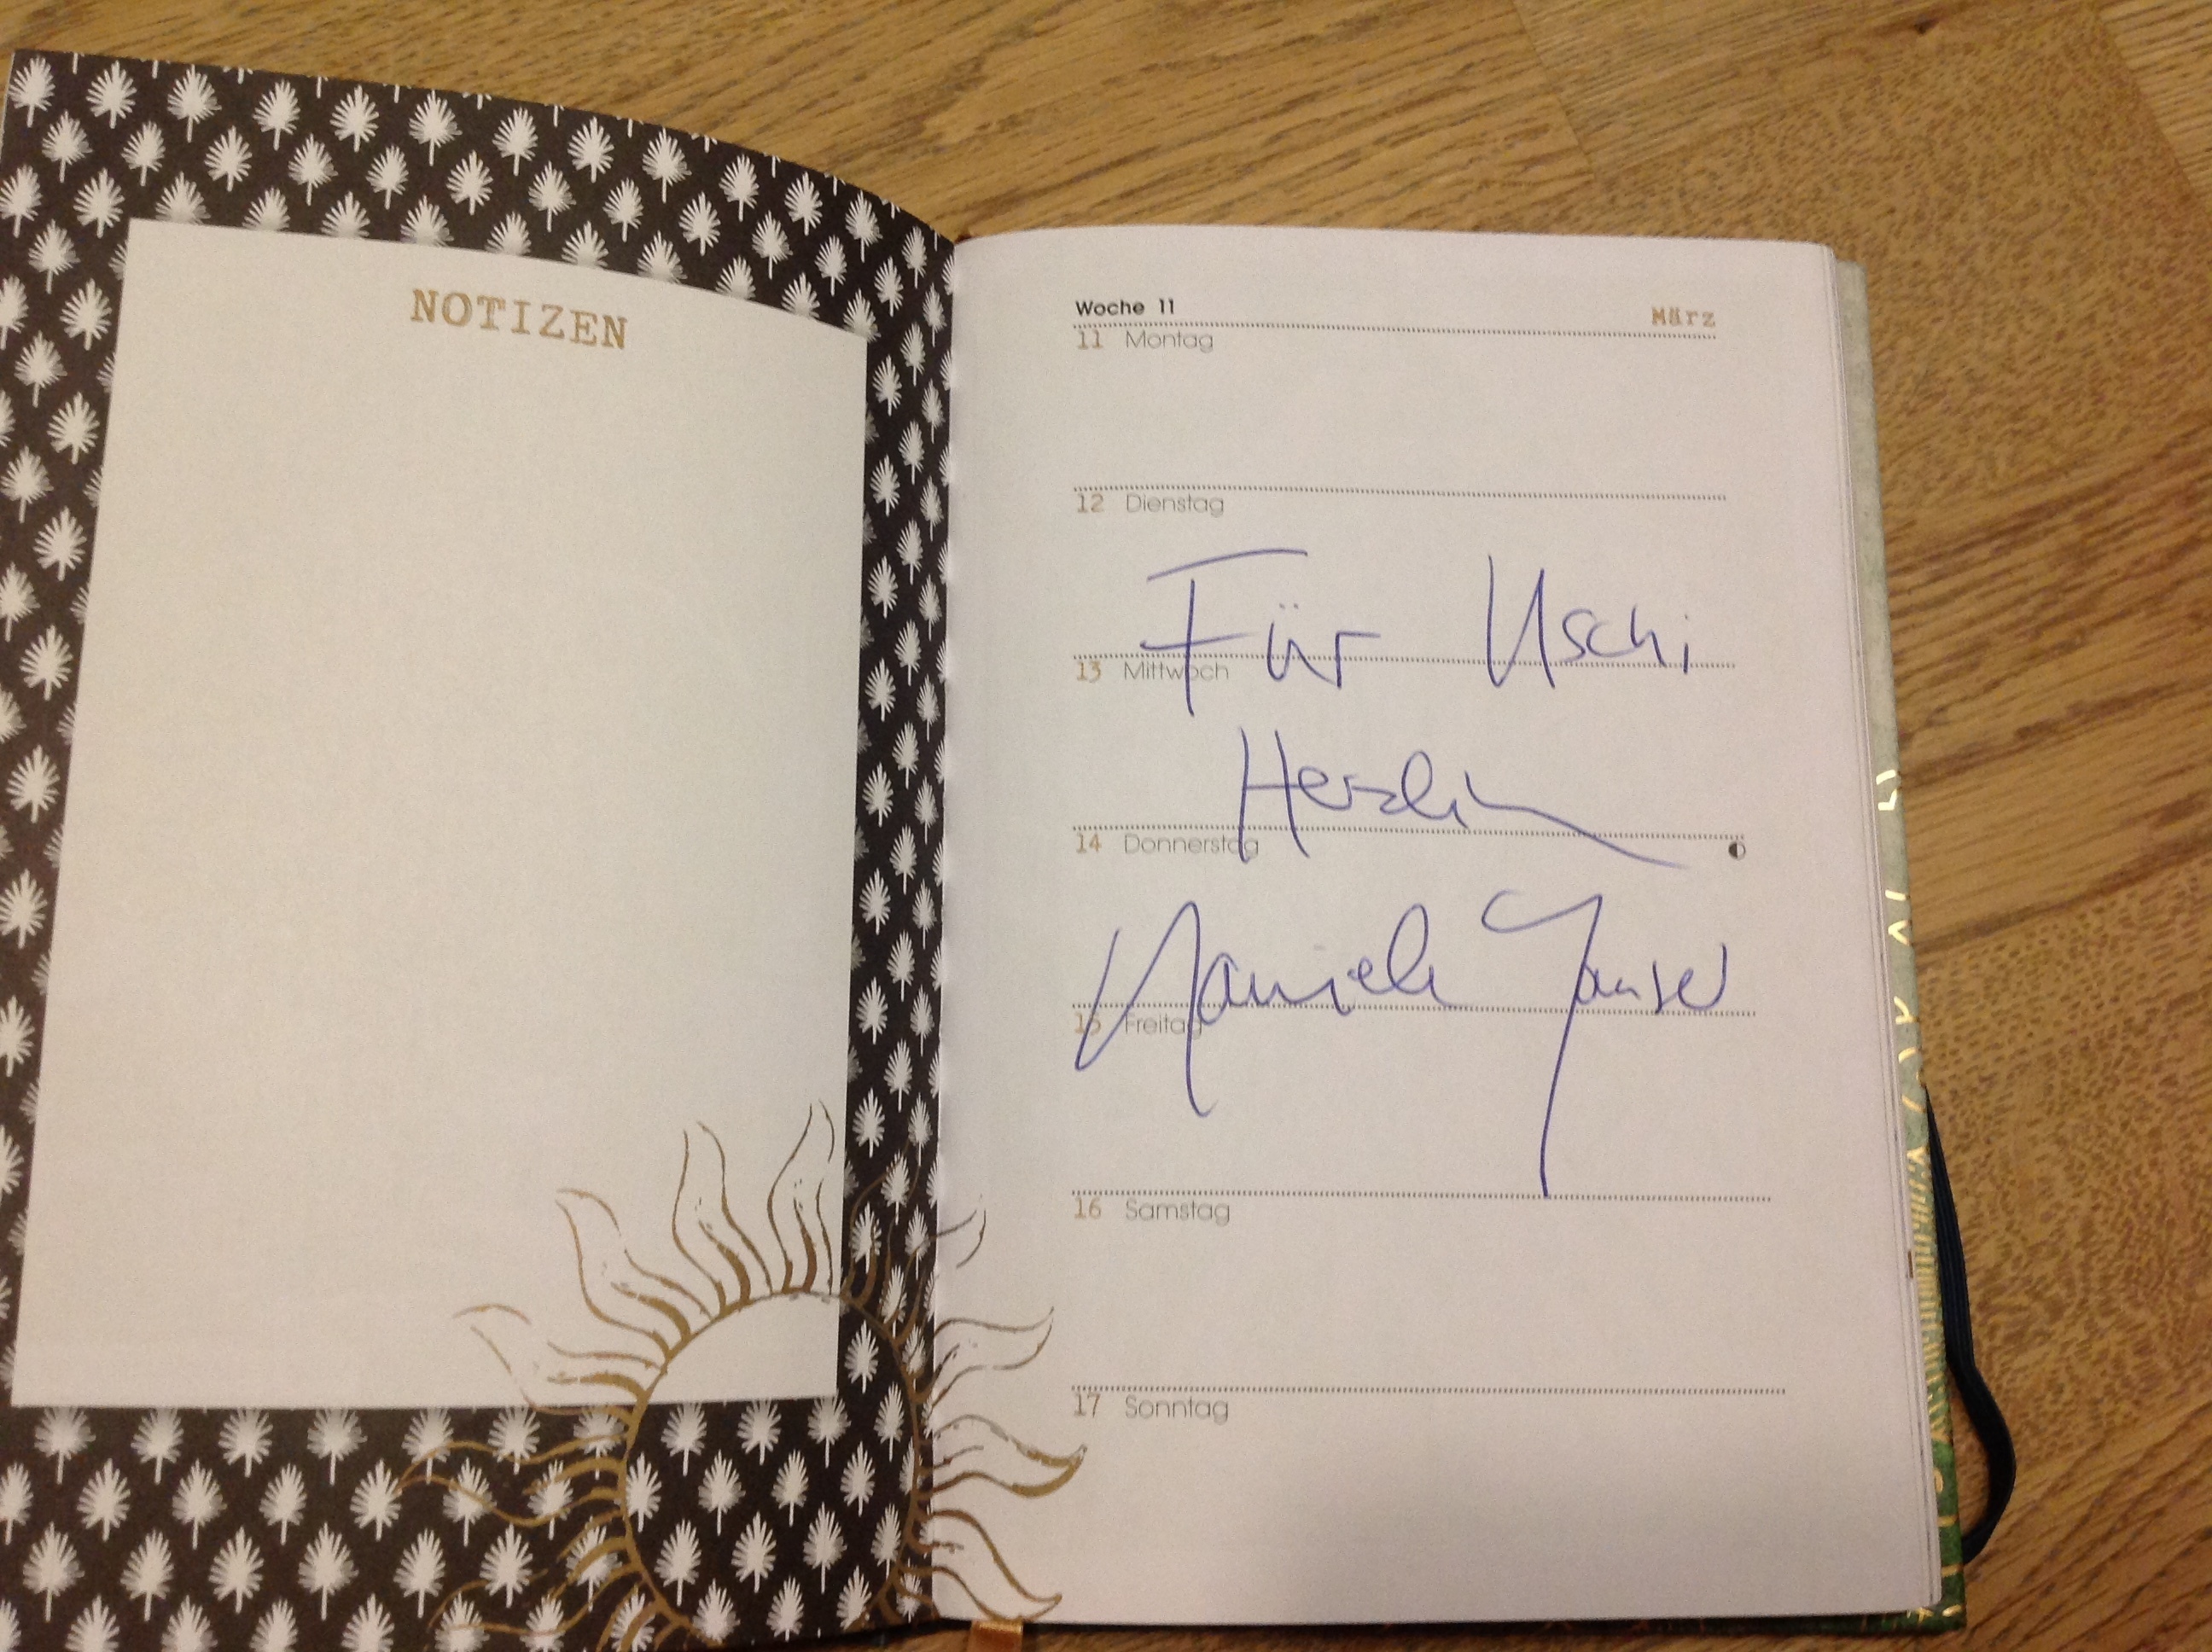 NOTIZEN
Woche 11 März
11 Montag
12 Dienstag
Für Uschi
13 Mittwoch
Herzlich
14 Donnerstag
15 Freitag
16 Samstag
17 Sonntag